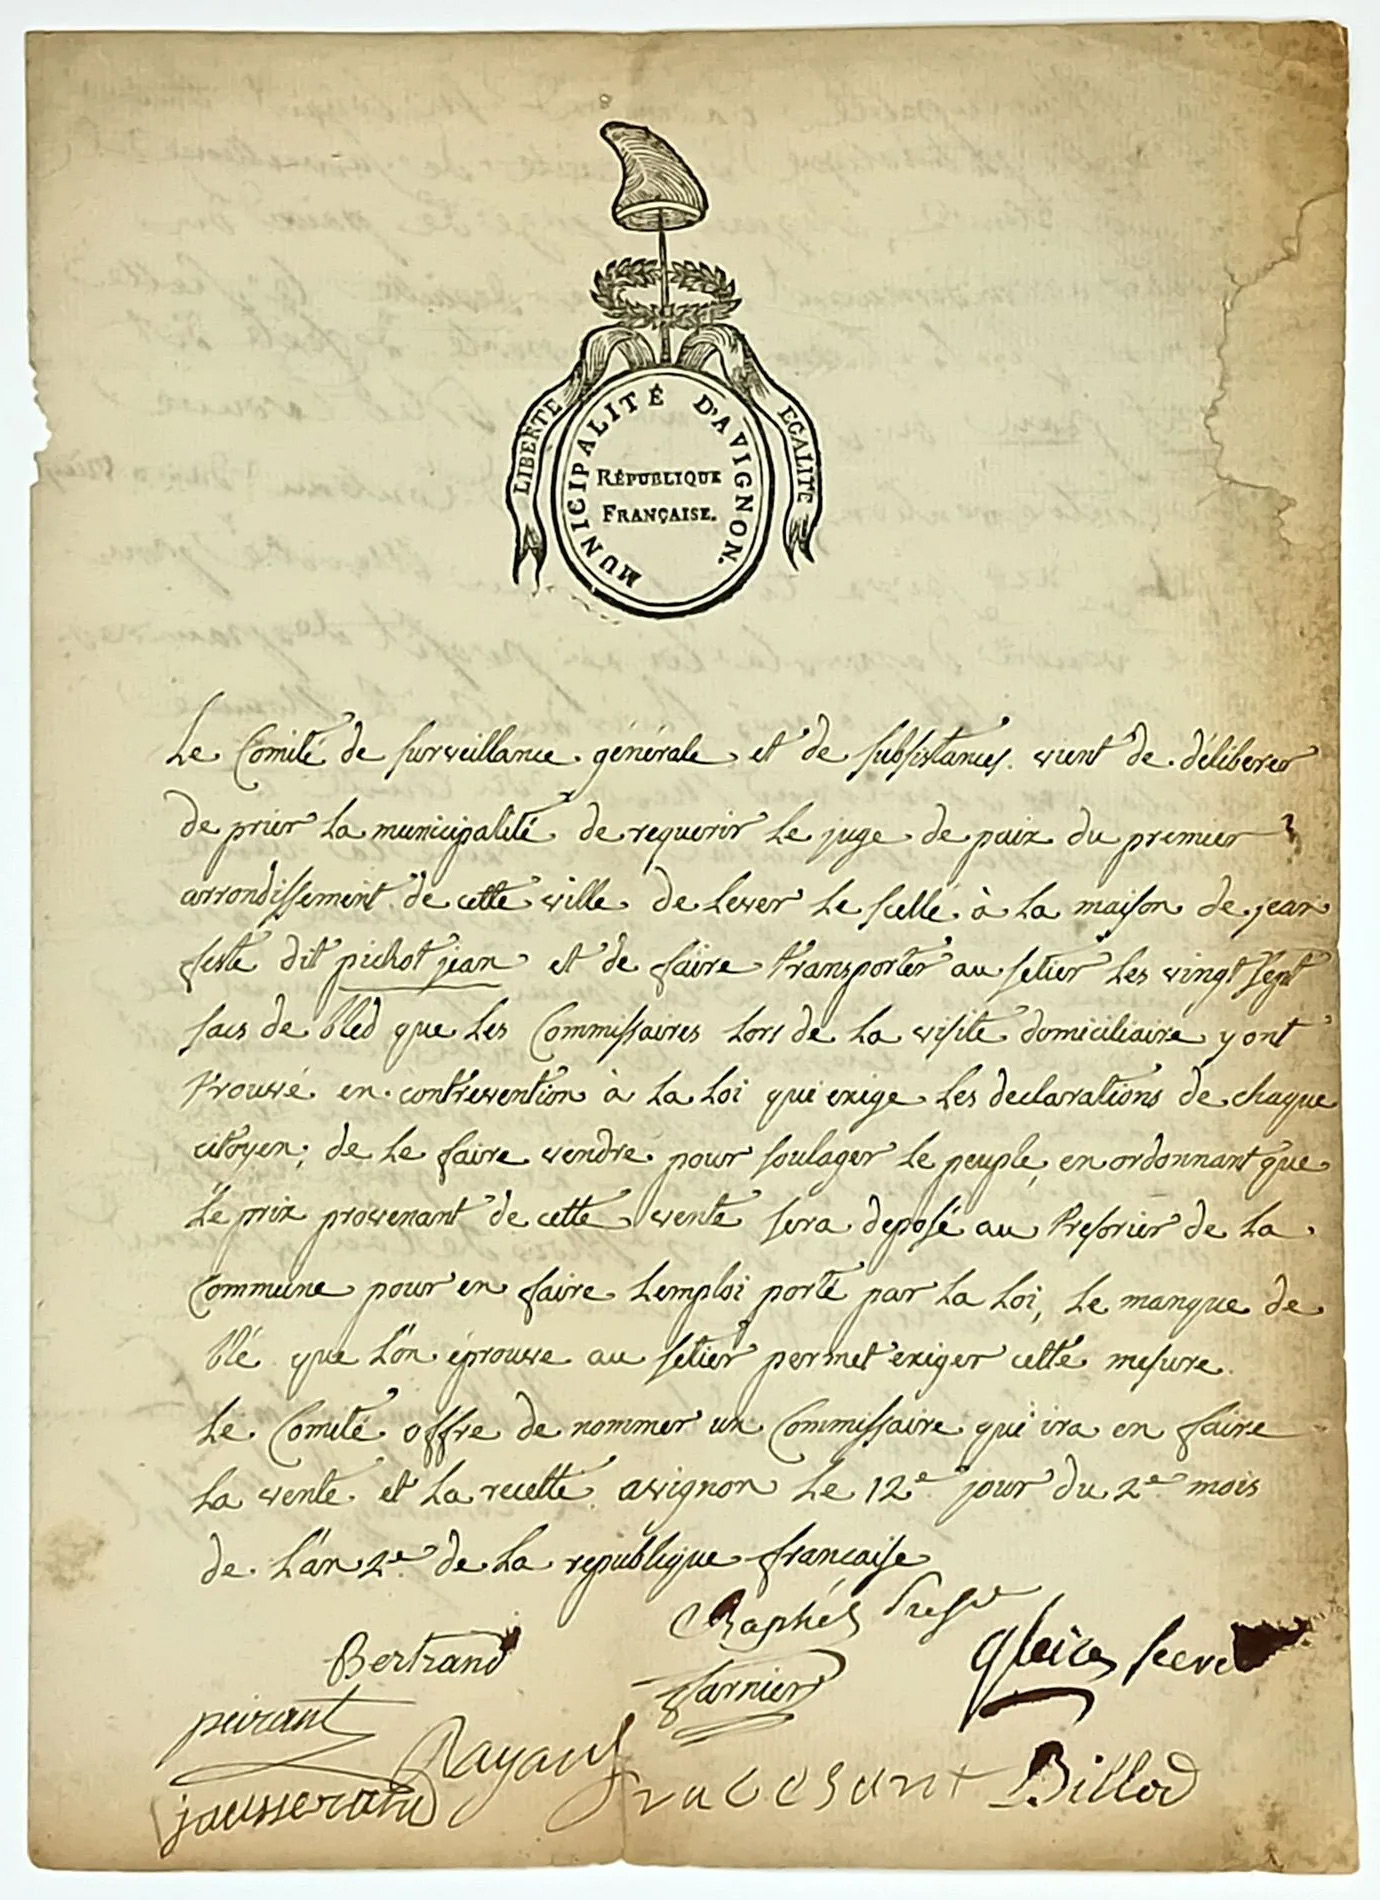 LIBERTE
EGALITE
MUNICIPALITÉ D'AVIGNON.
RÉPUBLIQUE
FRANÇAISE.
Le Comité de surveillance générale et de subsistances vient de déliberer
de prier la municipalité de requerir le juge de paix du premier
arrondissement de cette ville de lever le scellé à la maison de jean
feste dit pichot jean et de faire transporter au setier les vingt sept
sacs de bled que les Commissaires lors de la visite domiciliaire y ont
trouvé en contrevention à la loi qui exige les declarations de chaque
citoyen; de le faire vendre pour soulager le peuple, en ordonnant que
le prix provenant de cette vente sera deposé au tresorier de la
commune pour en faire l'emploi porté par la loi, le manque de
blé que l'on éprouve au setier permet exiger cette mesure.
Le Comité offre de nommer un Commissaire qui ira en faire
la vente et la recette. avignon le 12e jour du 2e mois
de l'an 2e de la republique francaise
Raphél
Bertrand
peirant
jausserand
Billod